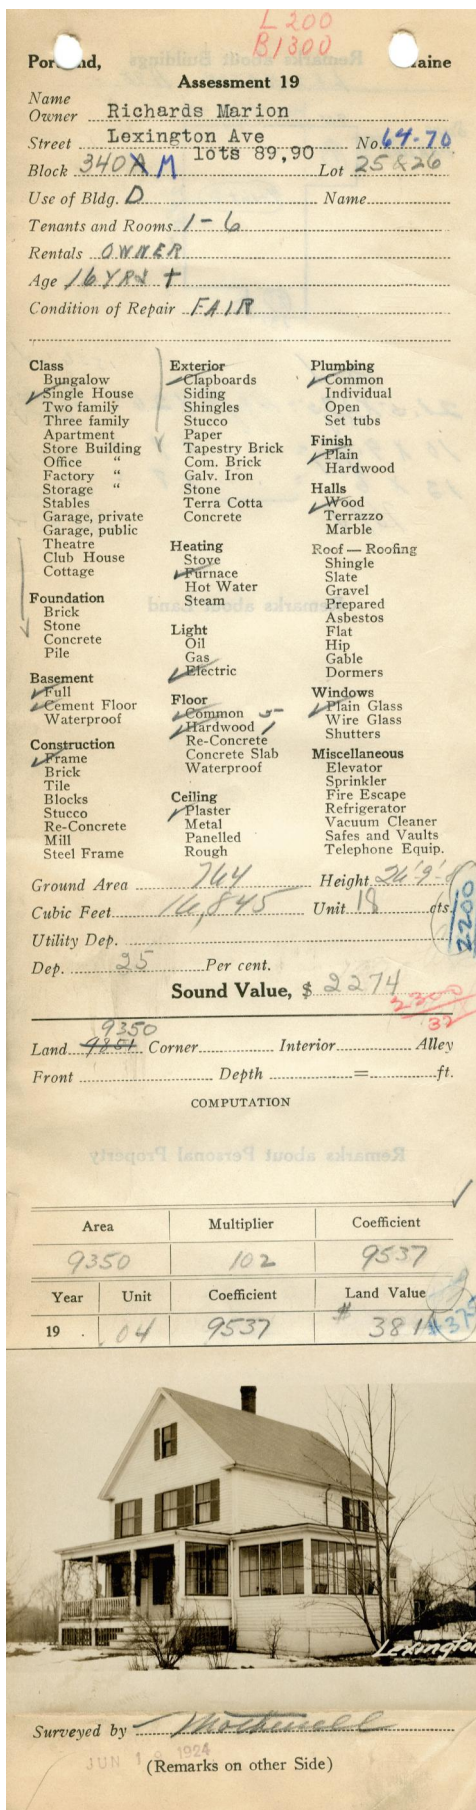 L 200
B 1300
Portland, Maine
Assessment 19
Name
Owner Richards Marion
Street Lexington Ave No. 64-70
lots 89,90
Block 340 A M Lot 25 & 26
Use of Bldg. D Name
Tenants and Rooms 1-6
Rentals OWNER
Age 16 YRS +
Condition of Repair FAIR
Class
Bungalow
Single House
Two family
Three family
Apartment
Store Building
Office "
Factory "
Storage "
Stables
Garage, private
Garage, public
Theatre
Club House
Cottage
Foundation
Brick
Stone
Concrete
Pile
Basement
Full
Cement Floor
Waterproof
Construction
Frame
Brick
Tile
Blocks
Stucco
Re-Concrete
Mill
Steel Frame
Exterior
Clapboards
Siding
Shingles
Stucco
Paper
Tapestry Brick
Com. Brick
Galv. Iron
Stone
Terra Cotta
Concrete
Heating
Stove
Furnace
Hot Water
Steam
Light
Oil
Gas
Electric
Floor
Common 5
Hardwood 1
Re-Concrete
Concrete Slab
Waterproof
Ceiling
Plaster
Metal
Panelled
Rough
Plumbing
Common
Individual
Open
Set tubs
Finish
Plain
Hardwood
Halls
Wood
Terrazzo
Marble
Roof — Roofing
Shingle
Slate
Gravel
Prepared
Asbestos
Flat
Hip
Gable
Dormers
Windows
Plain Glass
Wire Glass
Shutters
Miscellaneous
Elevator
Sprinkler
Fire Escape
Refrigerator
Vacuum Cleaner
Safes and Vaults
Telephone Equip.
Ground Area 764 Height
Cubic Feet 16,845 Unit 18 cts.
2200
Utility Dep.
Dep. 25 Per cent.
Sound Value, $ 2274
2300
32
9350
Land 9851 Corner Interior Alley
Front Depth = ft.
COMPUTATION
Area Multiplier Coefficient
9350 102 9537
Year Unit Coefficient Land Value
19 . 04 9537 $ 381 #375
Lexington
Surveyed by
JUN 1 1924
(Remarks on other Side)